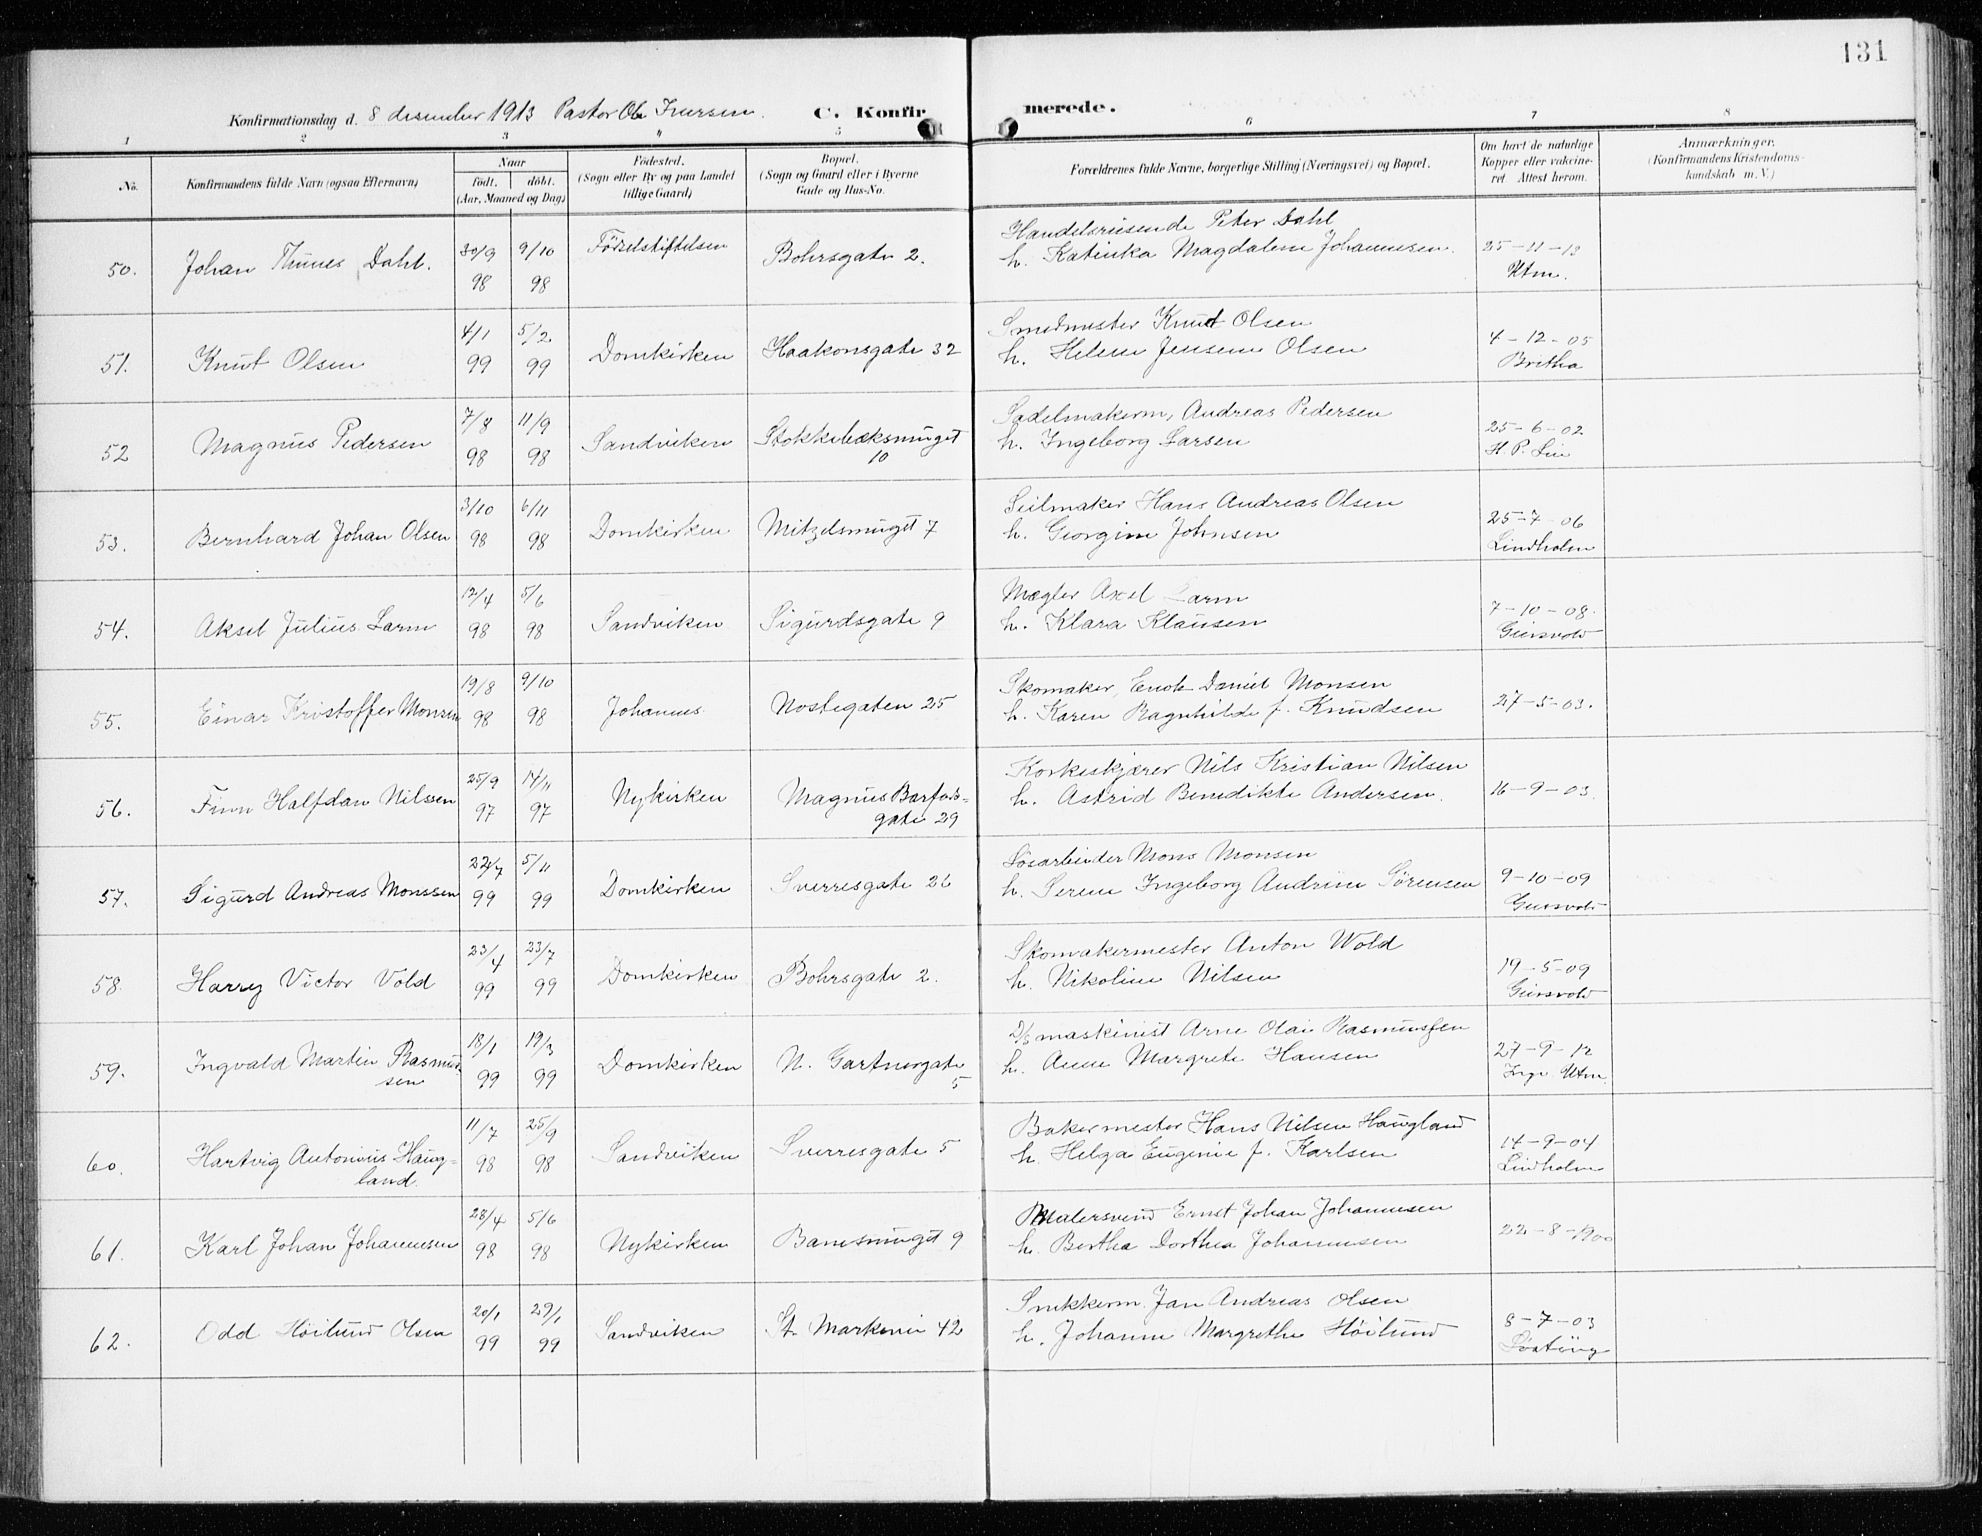 131
Konfirmationsdag d. 8 desember 1913 Pastor Ole Iversen. C. Konfirmerede.
1 2 3 4 5 6 7 8
No. Konfirmandens fulde Navn (ogsaa Efternavn) Naar født. døbt. (Aar, Maaned og Dag) Fødested. (Sogn eller By og paa Landet tillige Gaard) Bopæl. (Sogn og Gaard eller i Byerne Gade og Hus-No. Forældrenes fulde Navne, borgerlige Stilling (Næringsvei) og Bopæl. Om havt de naturlige Kopper eller vakcineret. Attest herom. Anmærkninger. (Konfirmandens Kristendomskundskab m. V.)
50. Johan Thunes Dahl. 30/9 98 9/10 98 Fødselstiftelsen Bohrsgate 2. Handelsreisende Peter Dahl
h. Katinka Magdalene Johannesen. 25-11-13 Utm.
51. Knut Olsen 4/1 99 5/2 99 Domkirken Haakonsgate 32 Smedmester Knud Olsen
h. Helene Jensine Olsen 4-12-05 Bretha
52 Magnus Pedersen 7/8 98 11/9 98 Sandviken Stokkebæksmuget 10 Sadelmakerm, Andreas Pedersen
h. Ingeborg Larsen 25-6-02 H. P. Lie
53. Bernhard Johan Olsen 3/10 98 6/11 98 Domkirken Mitzelsmuget 7 Seilmaker Hans Andreas Olsen
h. Georgine Johnsen 25-7-06 Lindholm
54. Aksel Julius Larm 12/4 98 5/6 98 Sandviken Sigurdsgate 9 Mægler Axel Larm
h. Klara Klausen 7-10-08. Geirsvold
55. Einar Kristoffer Monsen 19/8 98 9/10 98 Johannes Nostegaten 25 Skomaker, Enok Daniel Monsen
h. Karen Ragnhilde f. Knudsen 27-5-03.
56. Finn Halfdan Nilssen 25/9 97 14/11 97 Nykirken Magnus Barfods-gate 29 Korkeskjærer Nils Kristian Nilsen
h. Astrid Benedikte Andersen. 16-9-03
57. Sigurd Andreas Monssen 22/7 99 5/11 99 Domkirken Sverresgate 26 Løsarbeider Mons Monsen
h. Serine Ingeborg Andrine Sørensen 9-10-09 Geirsvold
58. Harry Victor Vold 23/4 99 23/7 99 Domkirken Bohrsgate 2. Skomakermester Anton Wold
h. Nikoline Nilsen 19-5-09 Geirsvold
59. Ingvald Martin Rasmussen 18/1 99 19/3 99 Domkirken N. Gartnergate 5 D/s maskinist Arne Olai Rasmussen
h. Anne Margrete Hansen 27-9-12 Inge Utm.
60. Hartvig Antonius Haug-land. 11/7 98 25/9 98 Sandviken Sverresgate 5 Bakermester Hans Nilsen Haugland
h. Helga Eugenie f. Karlsen 14-9-04 Lindholm
61. Karl Johan Johannesen 28/4 98 5/6 98 Nykirken Banesmuget 9 Malersvend Ernst Johan Johannesen
h. Bertha Dorthea Johannesen 22-8-1900
62. Odd Høilund Olsen 20/1 99 29/1 99 Sandviken St. Markevei 42 Snekkerm. Jan Andreas Olsen
h. Johanne Margrethe Høilund 8-7-03